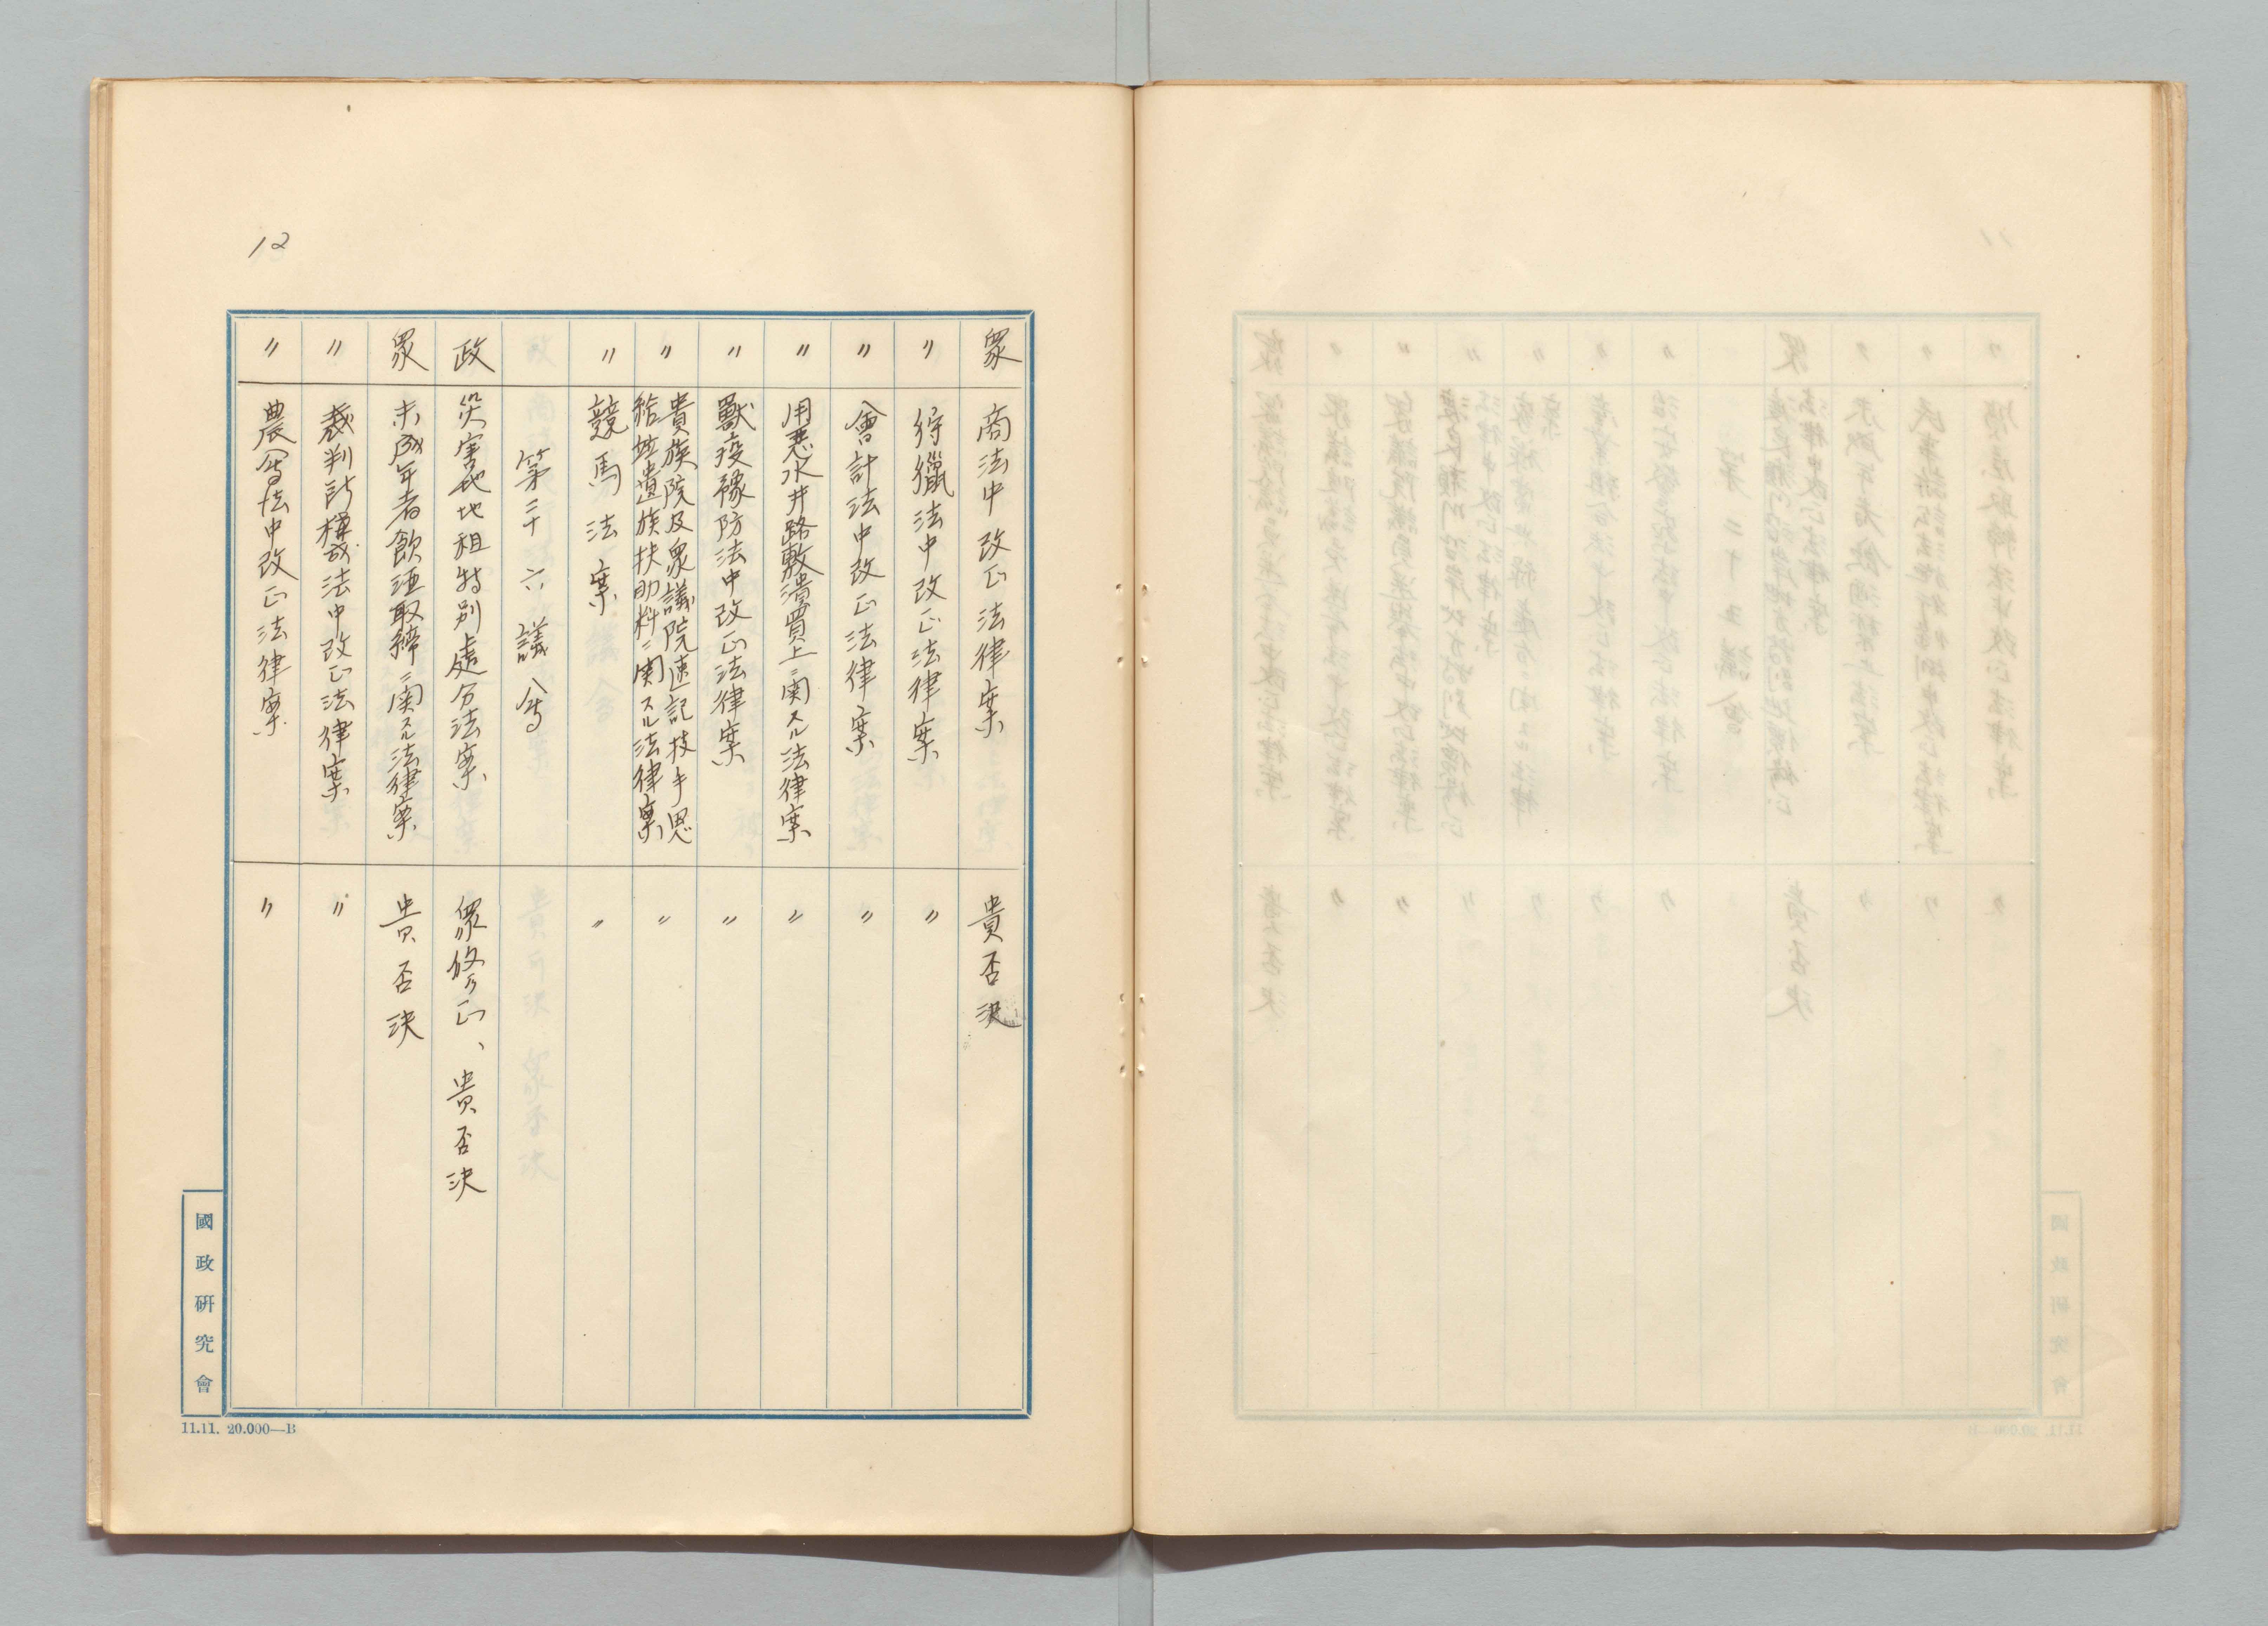 12
衆 商法中改正法律案 貴否決
〃 狩獵法中改正法律案 〃
〃 會計法中改正法律案 〃
〃 用悪水井路敷潰買上ニ関スル法律案 〃
〃 獸疫豫防法中改正法律案 〃
〃 貴族院及衆議院速記技手恩
給並遺族扶助料ニ関スル法律案 〃
〃 競馬法案 〃
第三十六議会
政 災害地地租特別處分法案 衆修正、貴否決
衆 未成年者飲酒取締ニ関スル法律案 貴否決
〃 裁判所構成法中改正法律案 〃
〃 農会法中改正法律案 〃
國政研究會
11.11. 20.000—B